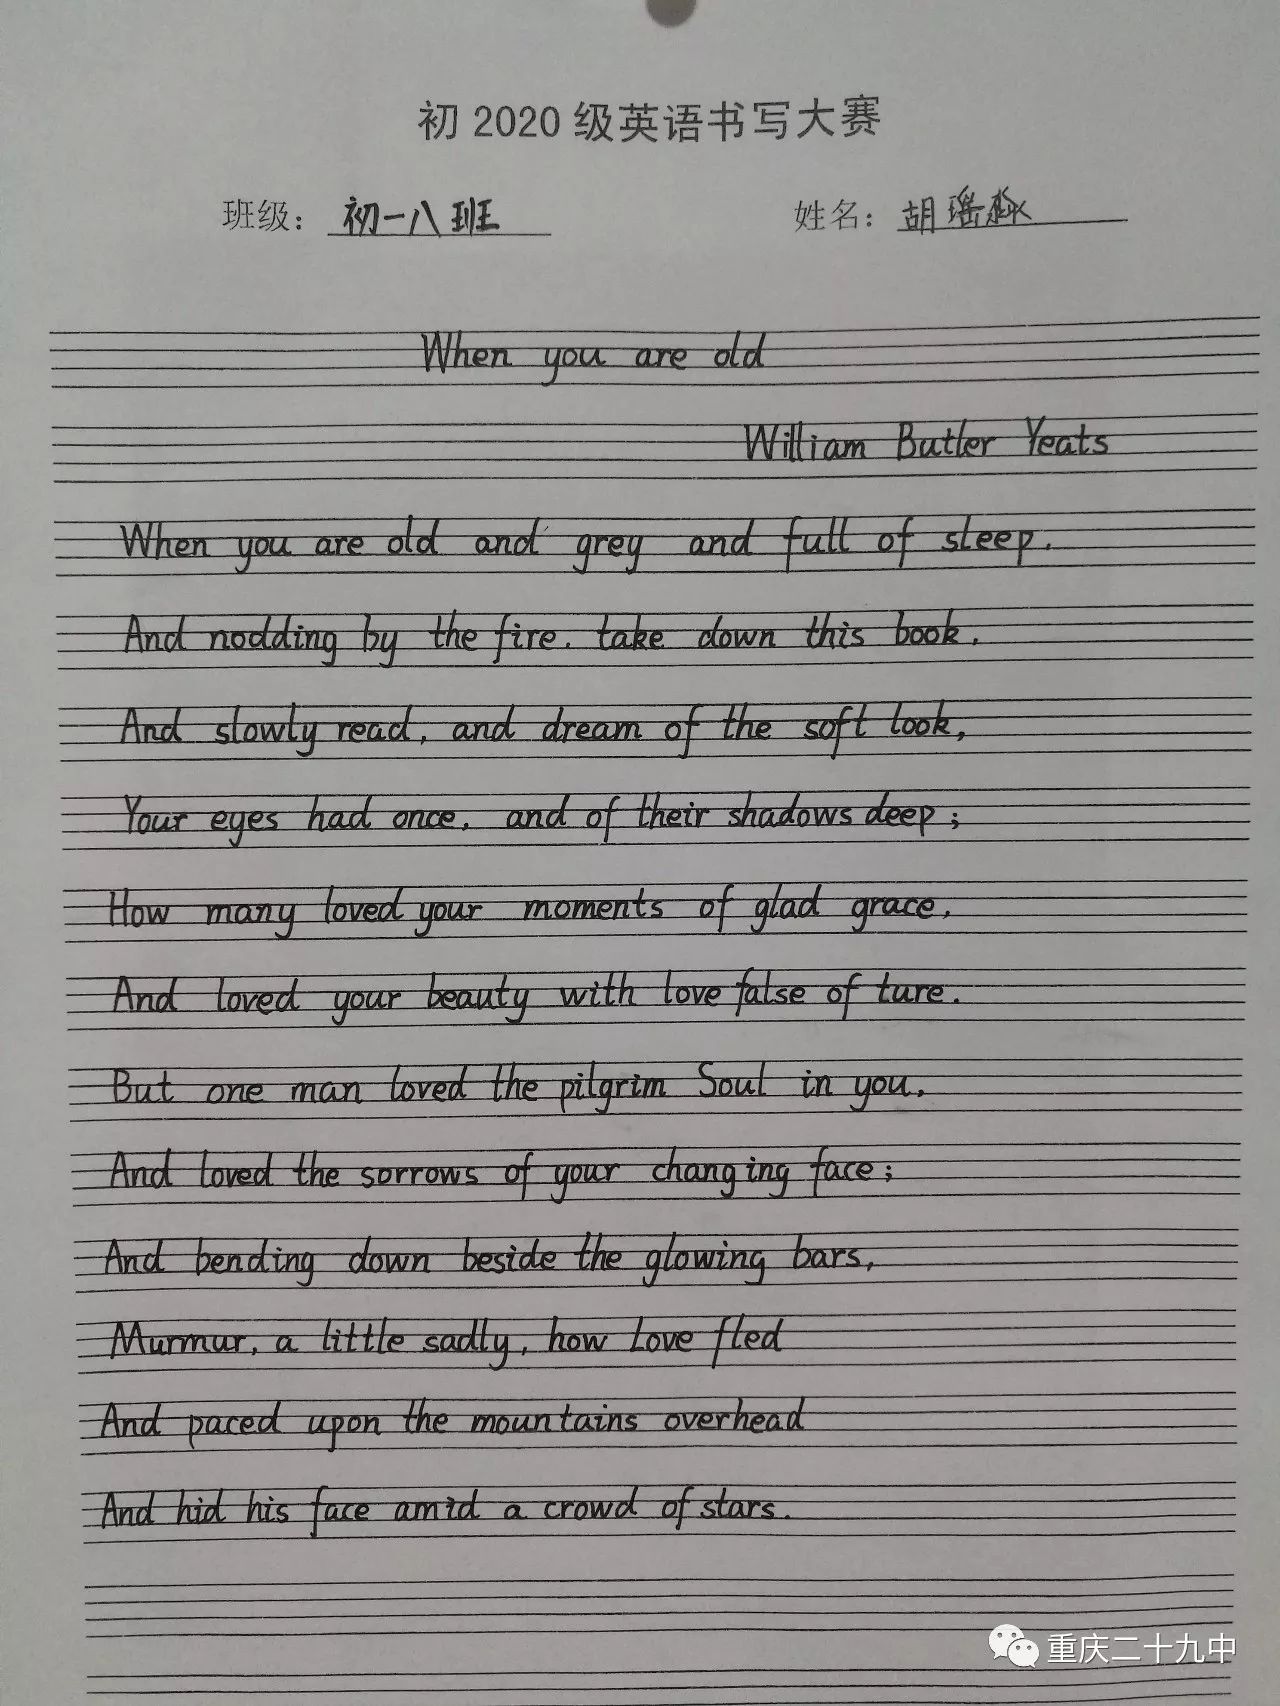 初2020级英语书写大赛
班级: 初一八班 姓名: 胡瑶
When you are old
William Butler Yeats
When you are old and grey and full of sleep.
And nodding by the fire. take down this book.
And slowly read, and dream of the soft look,
Your eyes had once, and of their shadows deep;
How many loved your moments of glad grace,
And loved your beauty with love false of ture.
But one man loved the pilgrim Soul in you,
And loved the sorrows of your changing face;
And bending down beside the glowing bars,
Murmur, a little sadly, how Love fled
And paced upon the mountains overhead
And hid his face amid a crowd of stars.
重庆二十九中